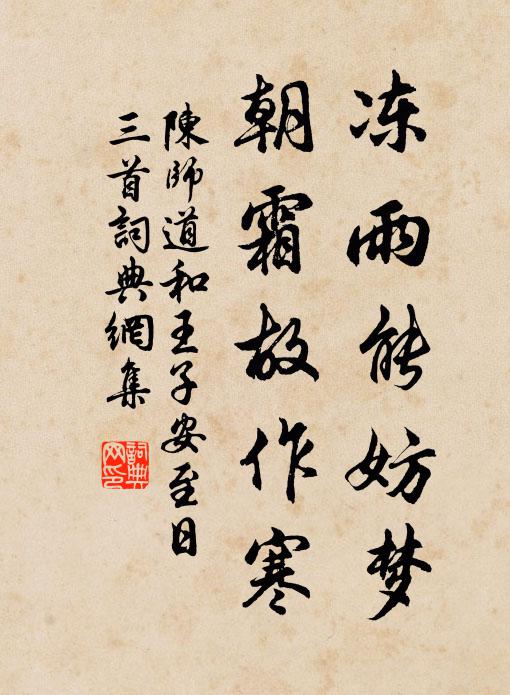 冻雨能妨梦
朝霜故作寒
陳師道和王子安至日
三首詞典網集
詞典网印